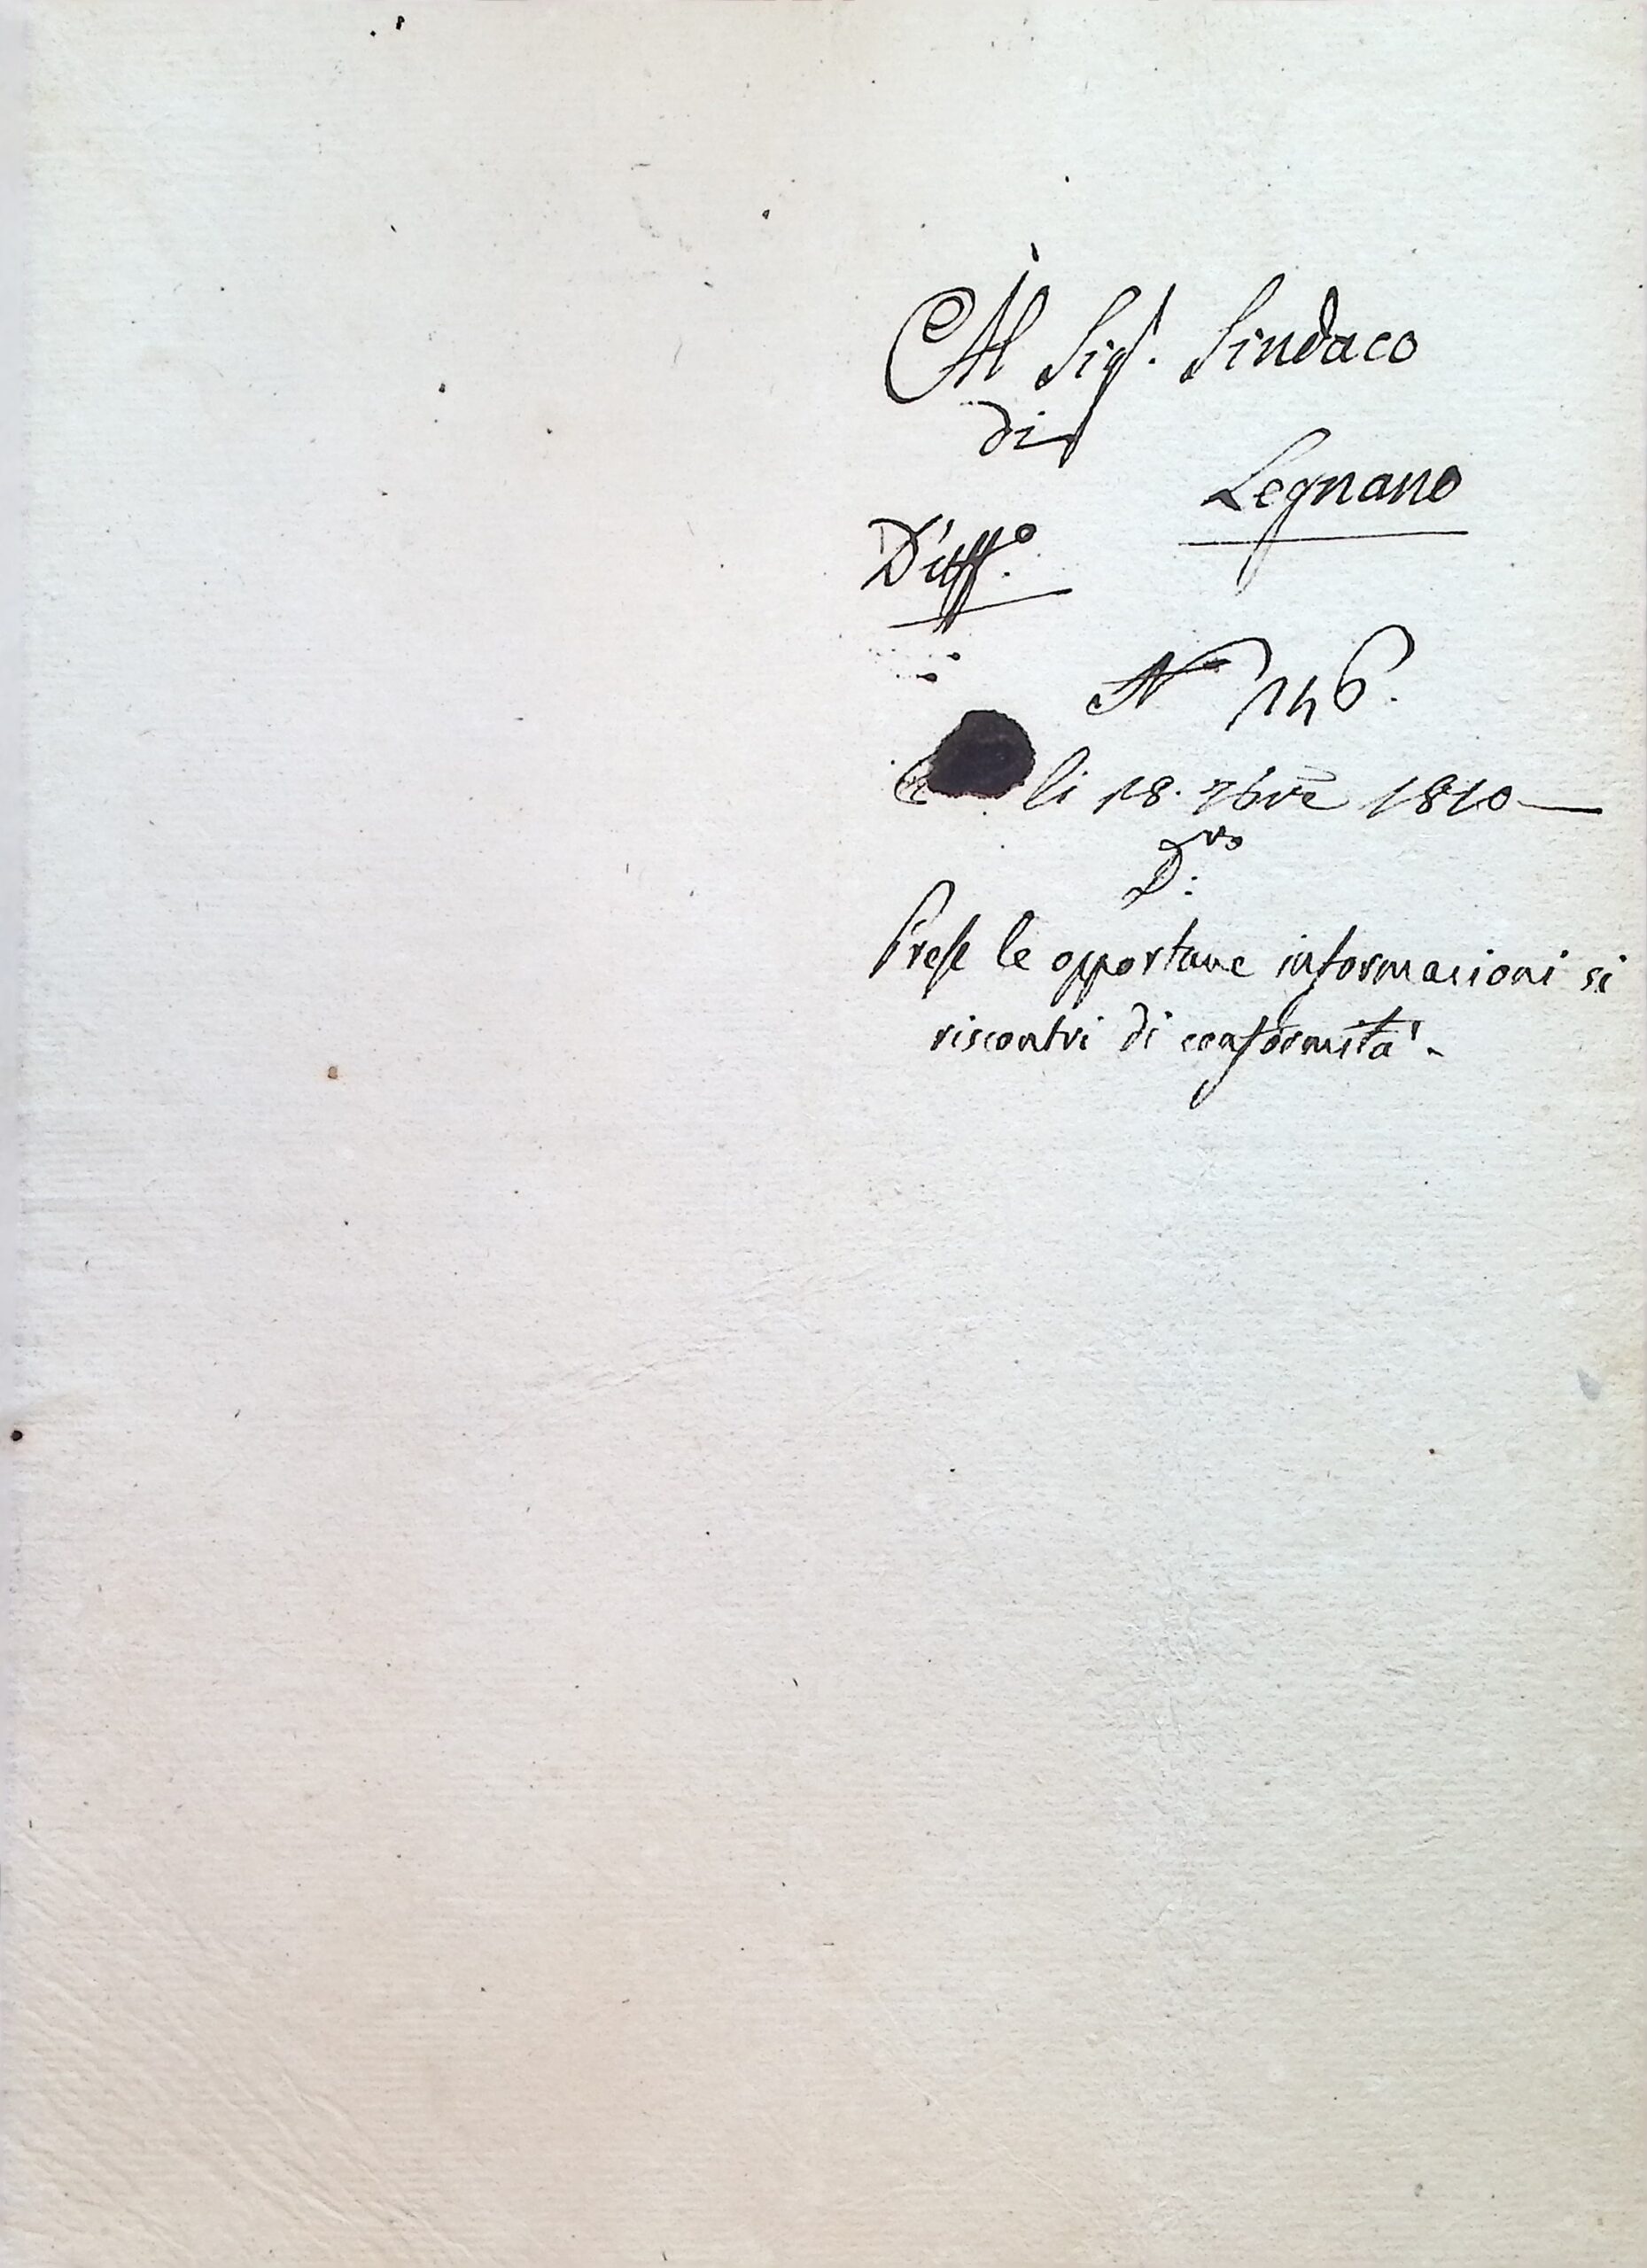 Al Sig.r Sindaco
di
Legnano
D'uff.o
N 146.
li 18. 7bre 1810
D:to
Prese le opportune informazioni si
riscontri di conformità.